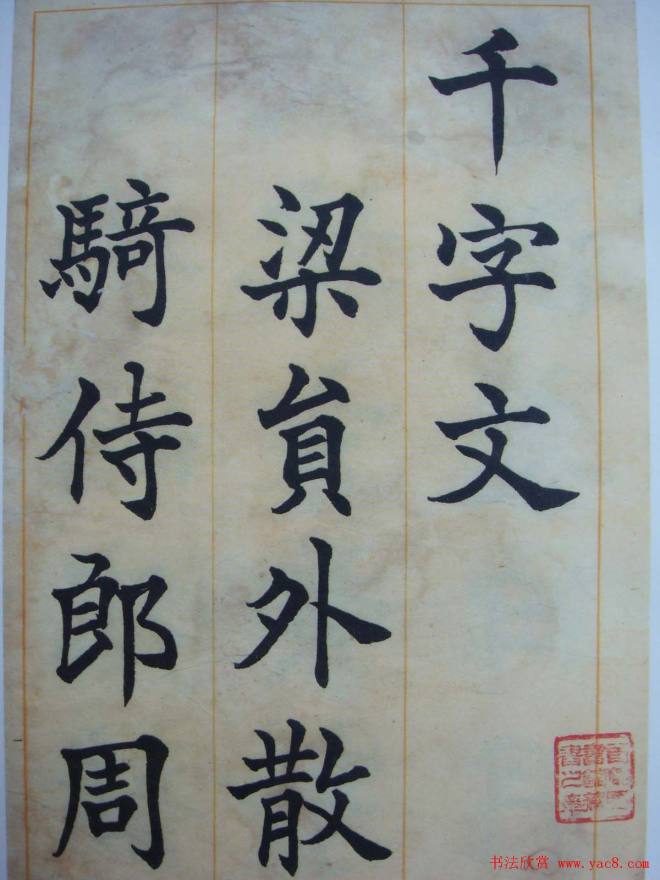 千字文
梁員外散
騎侍郎周
书法欣赏 www.yac8.com